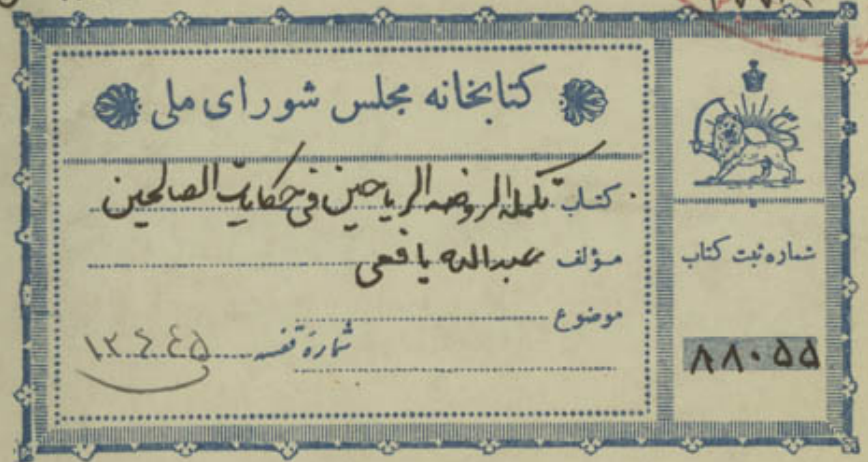 کتابخانه مجلس شورای ملی
کتاب تکملة الروضه الریاحین فی حکایات الصالحین
مؤلف عبدالله یافعی
موضوع
شماره قفسه ۱۳۴۴۵
شماره ثبت کتاب
۸۸۰۵۵